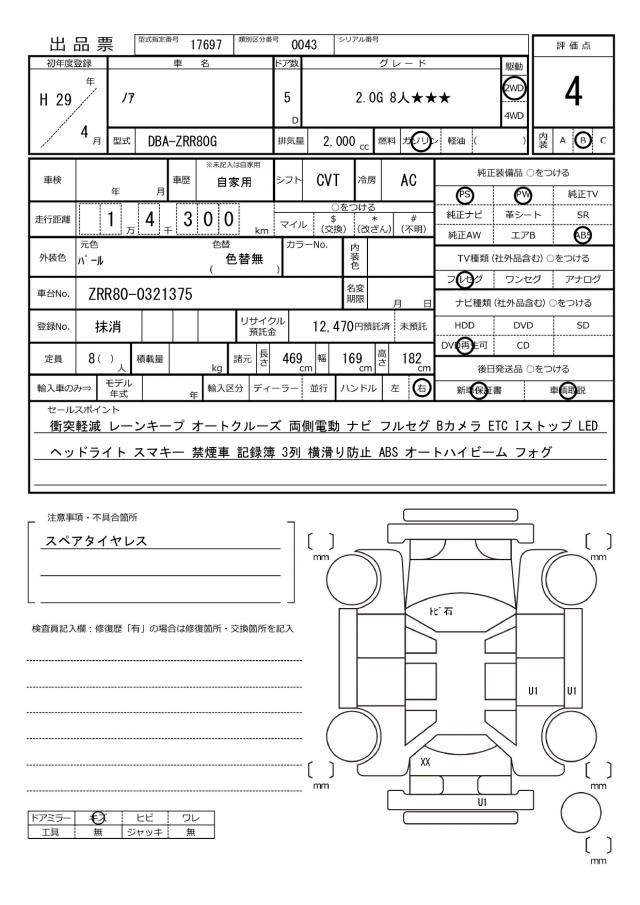 出品票 型式指定番号 17697 類別区分番号 0043 シリアル番号
評価点
4
内装 A B C
初年度登録 車名 ドア数 グレード 駆動
H 29 年 4 月 ノア 5 D 2.0G 8人★★★ 2WD 4WD
型式 DBA-ZRR80G 排気量 2,000 cc 燃料 ガソリン 軽油 ( )
車検 年 月 車歴 ※未記入は自家用 自家用 シフト CVT 冷房 AC
走行距離 1 万 4 千 3 0 0 km
○をつける
マイル $ (交換) * (改ざん) # (不明)
外装色 元色 パール 色替 ( 色替無 ) カラーNo. 内装色
車台No. ZRR80-0321375 名変期限 月 日
登録No. 抹消 リサイクル預託金 12,470円預託済 未預託
定員 8( ) 人 積載量 kg 諸元 長さ 469 cm 幅 169 cm 高さ 182 cm
輸入車のみ⇒ モデル年式 年 輸入区分 ディーラー 並行 ハンドル 左 右
純正装備品 ○をつける
PS PW 純正TV
純正ナビ 革シート SR
純正AW エアB ABS
TV種類 (社外品含む) ○をつける
フルセグ ワンセグ アナログ
ナビ種類 (社外品含む) ○をつける
HDD DVD SD
DVD再生可 CD
後日発送品 ○をつける
新車保証書 車輌取説
セールスポイント
衝突軽減 レーンキープ オートクルーズ 両側電動 ナビ フルセグ Bカメラ ETC Iストップ LED
ヘッドライト スマキー 禁煙車 記録簿 3列 横滑り防止 ABS オートハイビーム フォグ
注意事項・不具合箇所
スペアタイヤレス
検査員記入欄：修復歴「有」の場合は修復箇所・交換箇所を記入
ドアミラー キズ ヒビ ワレ
工具 無 ジャッキ 無
〔 〕 mm
〔 〕 mm
トビ石
U1 U1
XX
〔 〕 mm
〔 〕 mm
U1
〔 〕 mm